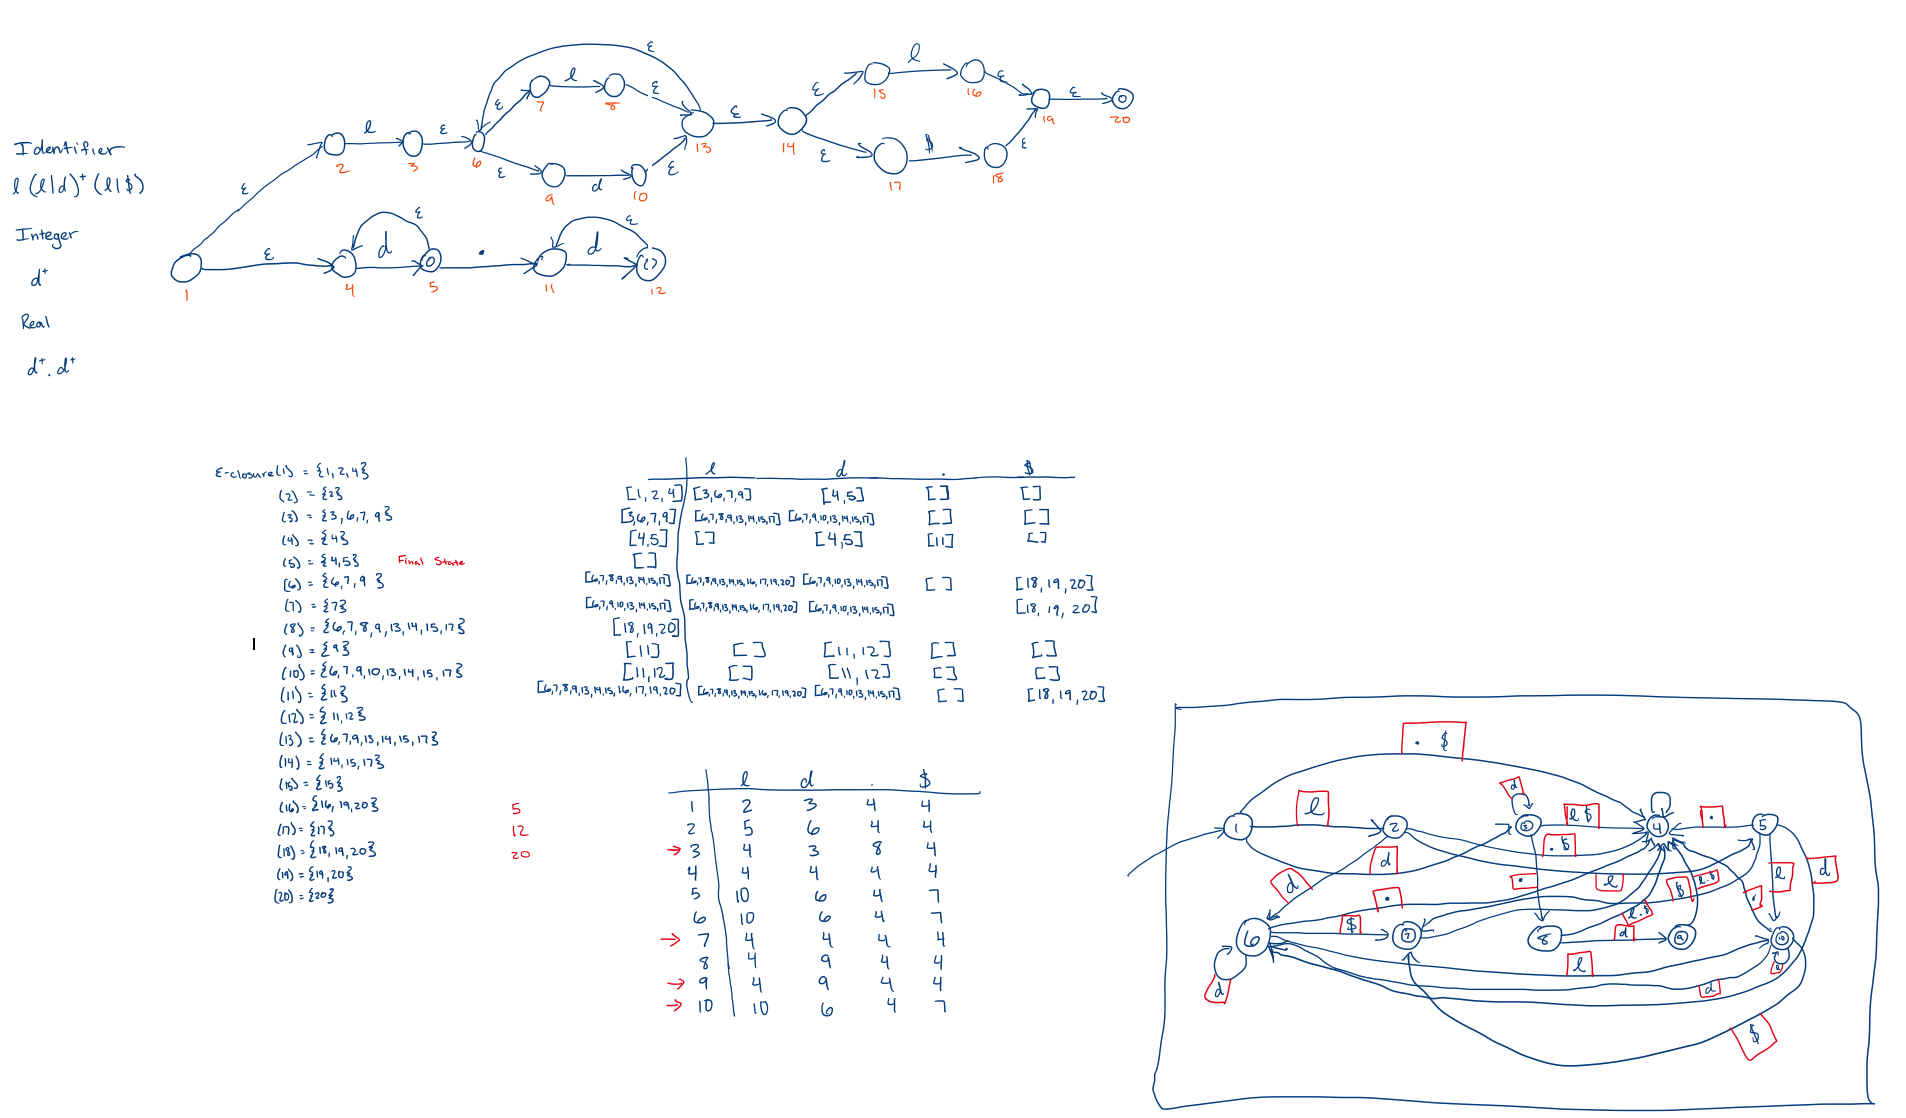 Identifier
l (l|d)⁺ (l|$)
Integer
d⁺
Real
d⁺. d⁺
ε ε l ε ε l ε ε ε d ε ε ε l ε ε $ ε ε
ε d ε . d ε
1 2 3 4 5 6 7 8 9 10 11 12 13 14 15 16 17 18 19 20
ε-closure(1) = {1, 2, 4}
(2) = {2}
(3) = {3, 6, 7, 9}
(4) = {4}
(5) = {4,5} Final State
(6) = {6,7,9 }
(7) = {7}
(8) = {6,7,8,9,13,14,15,17}
(9) = {9}
(10) = {6,7,9,10,13,14,15,17}
(11) = {11}
(12) = {11,12}
(13) = {6,7,9,13,14,15,17}
(14) = {14,15,17}
(15) = {15}
(16) = {16,19,20}
(17) = {17}
(18) = {18,19,20}
(19) = {19,20}
(20) = {20}
5
12
20
l d . $
[1, 2, 4] [3,6,7,9] [4,5] [ ] [ ]
[3,6,7,9] [6,7,8,9,13,14,15,17] [6,7,9,10,13,14,15,17] [ ] [ ]
[4,5] [ ] [4,5] [11] [ ]
[ ]
[6,7,8,9,13,14,15,17] [6,7,8,9,13,14,15,16,17,19,20] [6,7,9,10,13,14,15,17] [ ] [18,19,20]
[6,7,9,10,13,14,15,17] [6,7,8,9,13,14,15,16,17,19,20] [6,7,9,10,13,14,15,17] [18, 19, 20]
[18,19,20]
[11] [ ] [11,12] [ ] [ ]
[11,12] [ ] [11,12] [ ] [ ]
[6,7,8,9,13,14,15,16,17,19,20] [6,7,8,9,13,14,15,16,17,19,20] [6,7,9,10,13,14,15,17] [ ] [18,19,20]
l d . $
1 2 3 4 4
2 5 6 4 4
→ 3 4 3 8 4
4 4 4 4 4
5 10 6 4 7
6 10 6 4 7
→ 7 4 4 4 4
8 4 9 4 4
→ 9 4 9 4 4
→ 10 10 6 4 7
. $
d
l l $ .
1 2 3 4 5
. $
d l d
d . l $ l . $ l
. .
$ l . $ d
6 7 8 9 10
l
d d
$